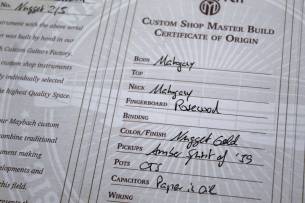 No. Nugget 2/5
instrument with the above serial
was built by hand in our
Custom Guitars Factory.
custom shop instruments
individually selected
highest Quality Space.
our Maybach custom
combine traditional
instrument making
developments and
this field.
CUSTOM SHOP MASTER BUILD
CERTIFICATE OF ORIGIN
BODY Mahgay
TOP
NECK Mahgay
FINGERBOARD Rosewood
BINDING
COLOR/FINISH Nugget Gold
PICKUPS Amber Spirit of '59
POTS CTS
CAPACITORS Paper in Oil
WIRING